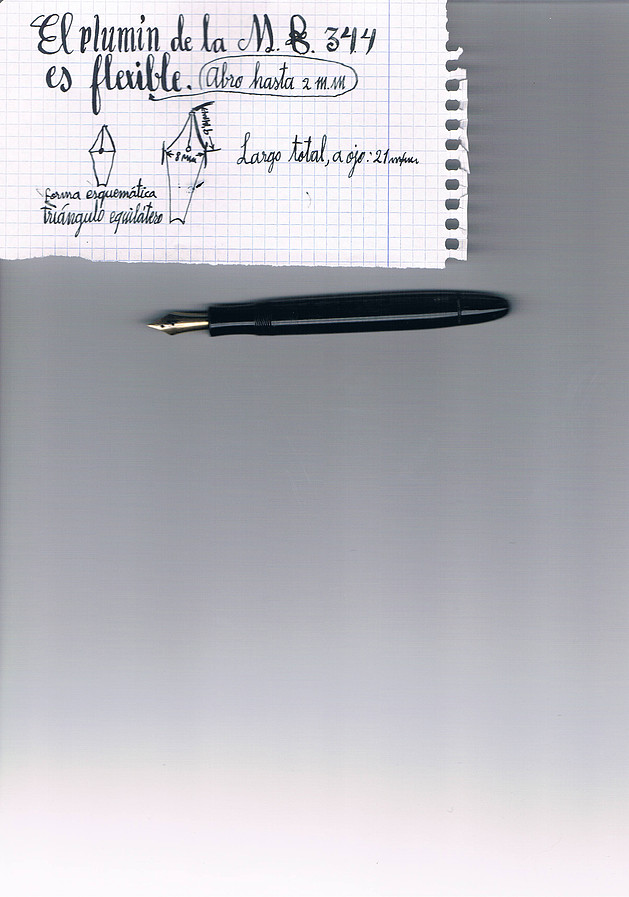 El plumin de la M.B. 344
es flexible. (Abro hasta 2 m.m)
8 mm
Largo total, a ojo: 21 mm
forma esquemática
triángulo equilátero